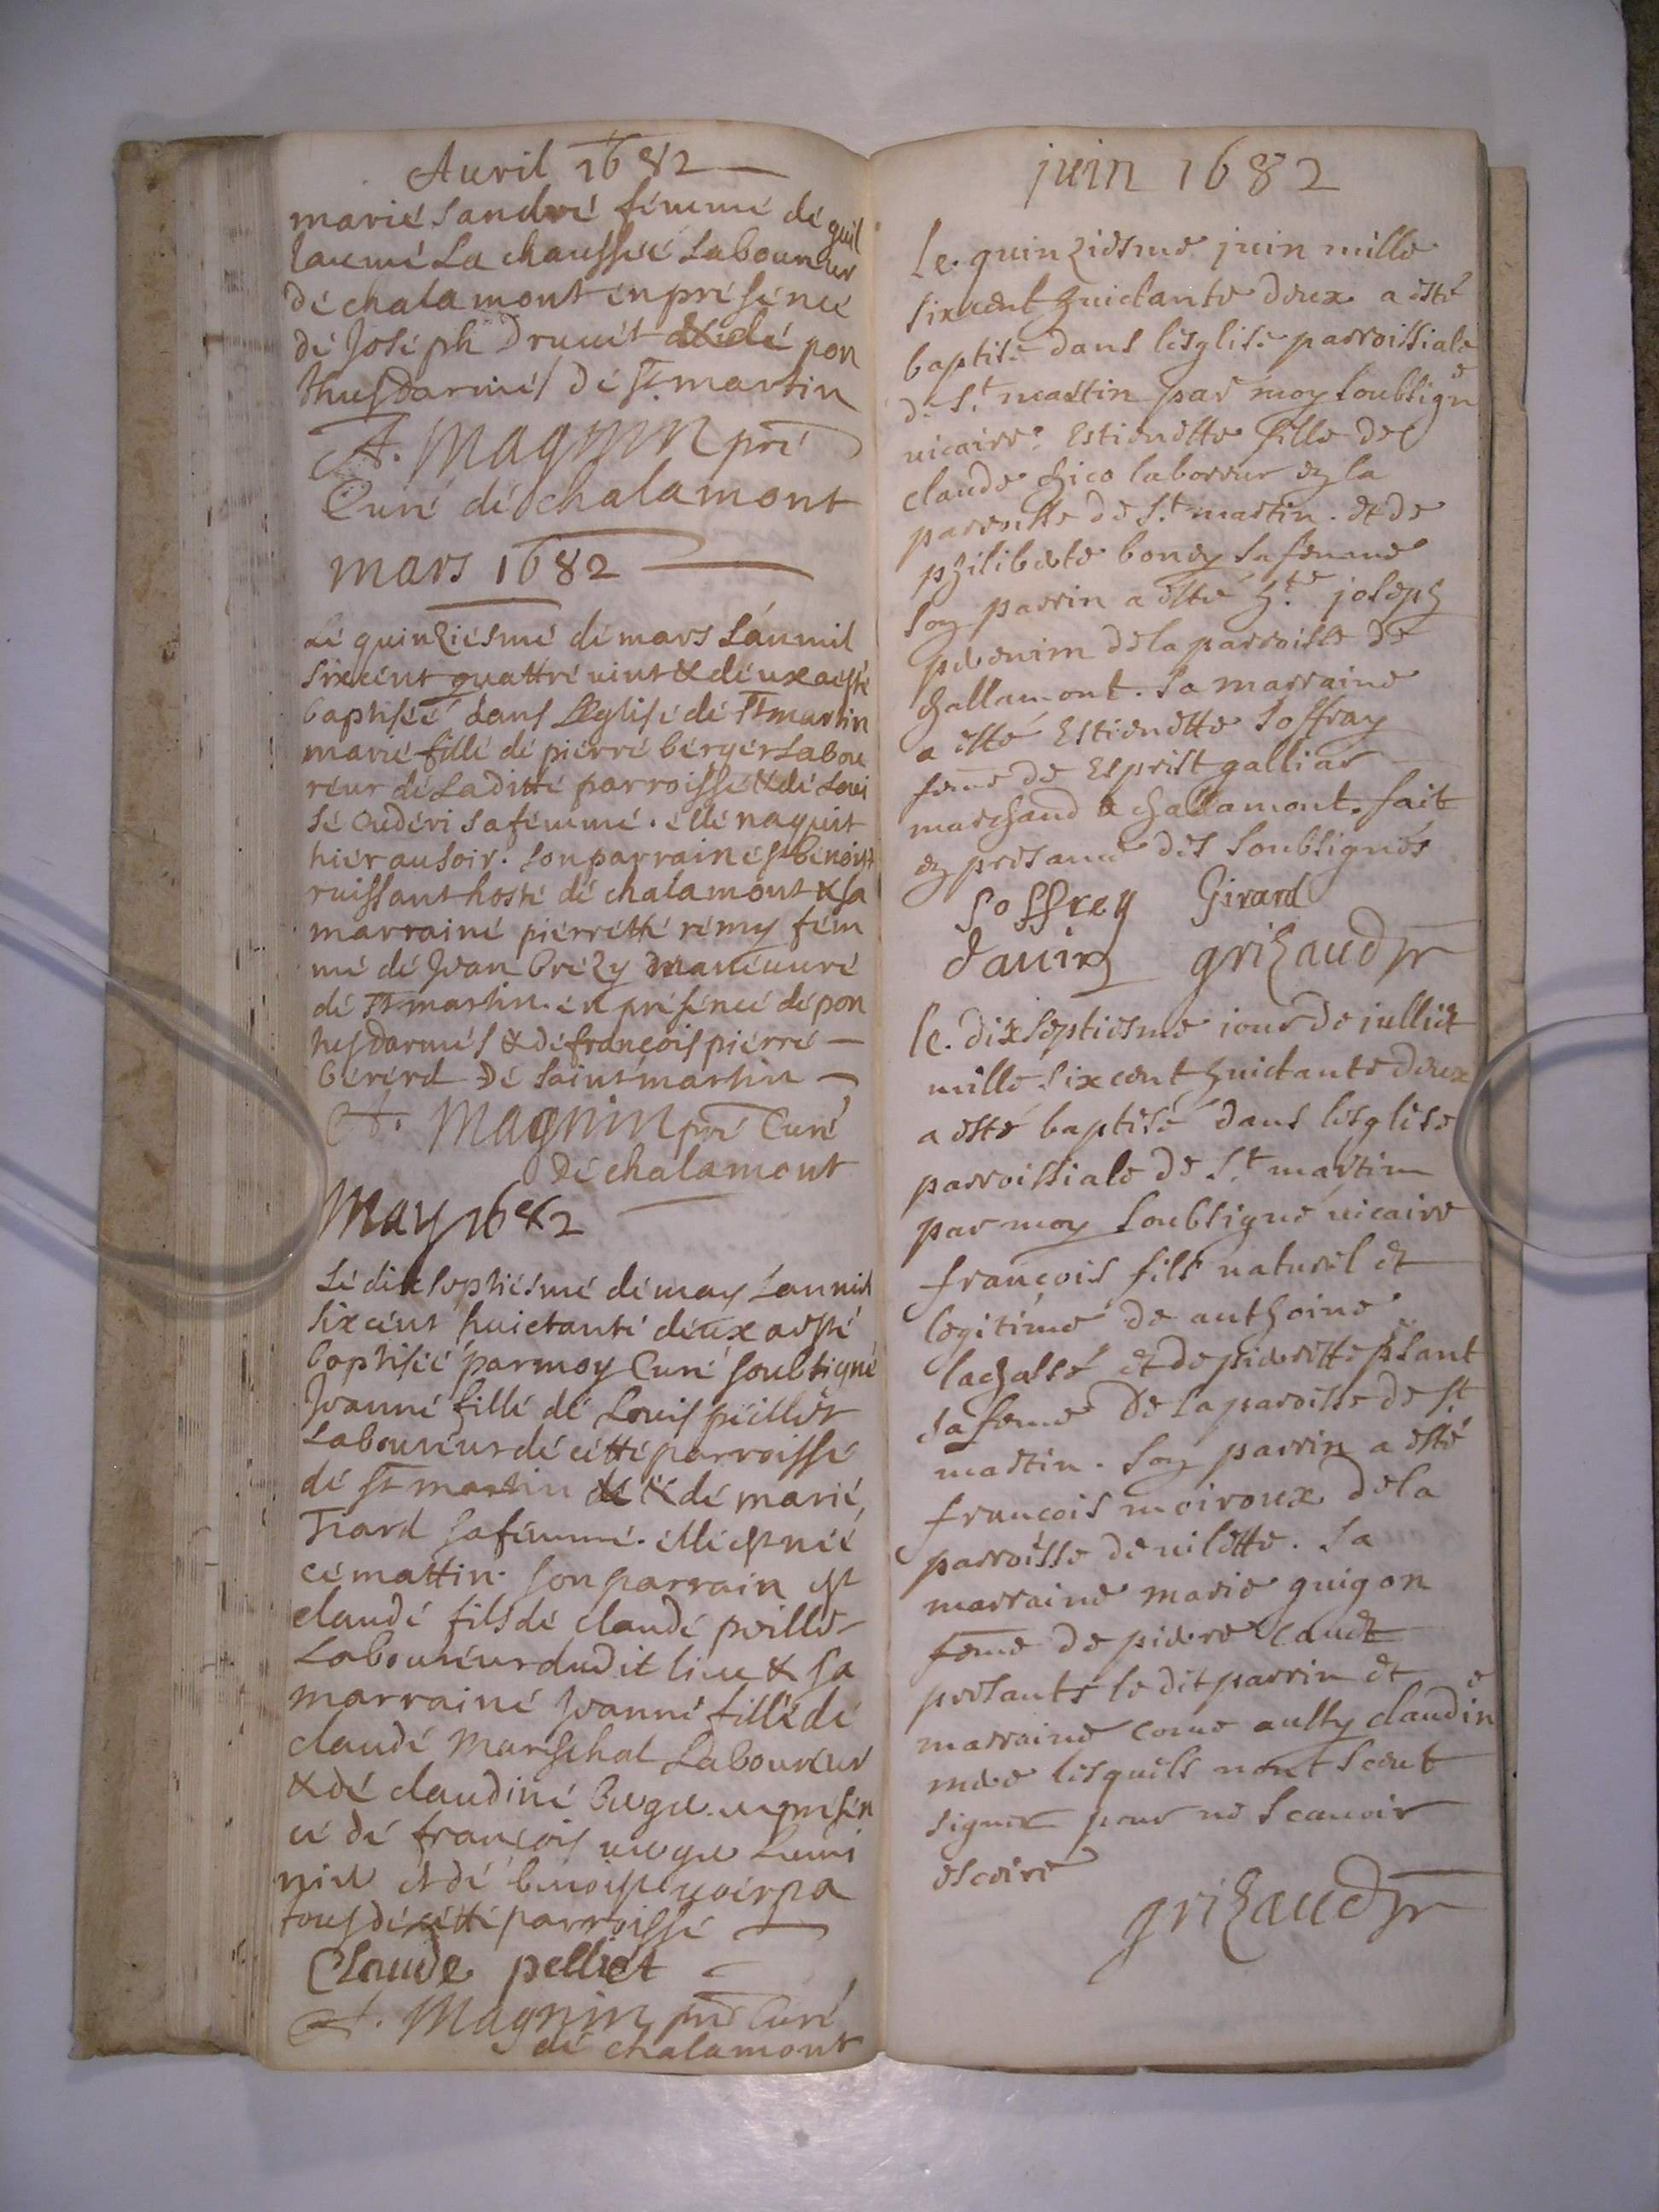 Auril 1682
marie sandré femme de guil
laume La chaussée Laboureur
de chalamont en présence
de Joseph Druuet & de pon
thus darmes de st. martin
A. Magnin pre
Curé de chalamont
mars 1682
Le quinziesme de mars L'anmil
sixcent quattre uint & deux a esté
baptisée dans L'Eglise de st martin
marie fille de pierre berger Labou
reur de Laditte parroisse & de Loui
se Cuderi sa femme. elle naquit
hier au soir. son parrain est benoist
ruissant hoste de chalamont & sa
marraine pierrette rémy fem
me de Jean brézy manœuure
de st martin. en présence de pon
thus darmes & de françois pierre
bererd de saint martin
A. Magnin pre Curé
de chalamont
May 1682
Le dixseptiesme de may Lan mil
sixcent huictante deux a esté
baptisée par moy Curé soubsigné
Jeanne fille de Louis peillet
Laboureur de cette parroisse
de st martin & de marie
Tiard sa femme. elle est née
ce mattin. son parrain est
claude fils de claude peillet
Laboureur dudit lieu & sa
marraine Jeanne fille de
claude Mareschal Laboureur
& de claudine buge en présen
ce de françois
nier et de benoist
tous de cette parroisse
Claude pelliet
A. Magnin pre Curé
de chalamont
juin 1682
Le quinziesme juin mille
sixcent huictante deux a esté
baptisé dans lesglise parroissiale
de St. martin par moy soubsigne
uicaire. Estienette fille de
claude hico laboreur en la
paroisse de St. martin. et de
philiberte boney sa femme
son parrin a esté hte. joseph
peuenim dela parroisse de
challamont. Sa marraine
a esté Estienette Soffray
feme de Esprist galliar
marchand a challamont. fait
en presance des soubsignés
Soffrey Girard
dauin grizaud pr
le dixseptiesme iour de iulliet
mille sixcent huictante deux
a esté baptisé dans lesglise
parroissiale de St. martin
par moy soubsigné uicaire
françois fils naturel et
legitime de anthoine
lachassé et de pierrette
sa feme de la paroisse de St.
martin. Son parrin a esté
françois moiroux dela
parroisse de uilette. Sa
marraine marie guigon
feme de pierre caudt
presants le dit parrin et
marraine come aussy claudine
mere lesquels nont sceut
signer pour ne scauoir
escrire
grizaud pr